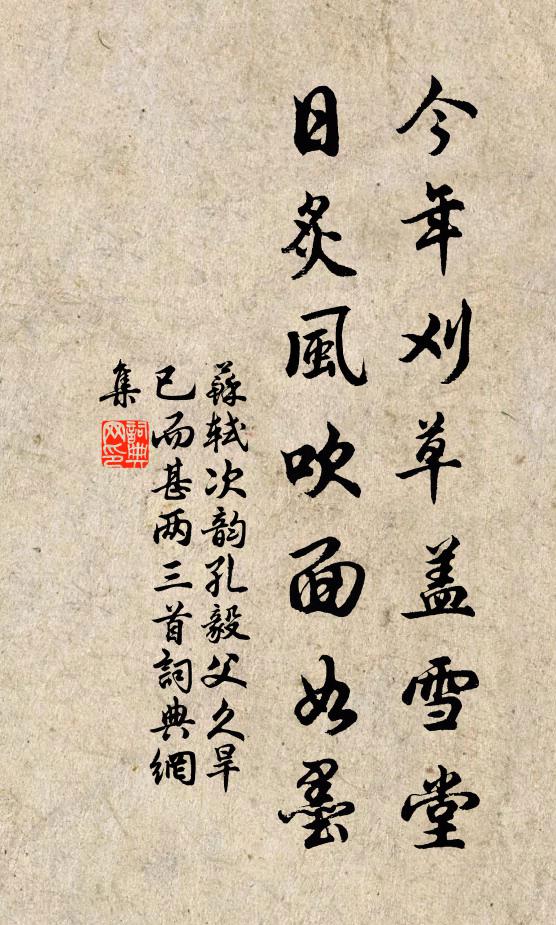 今年刈草盖雪堂
日炙風吹面如墨
蘇軾次韵孔毅父久旱
已而甚两三首詞典網
集
詞典
网印